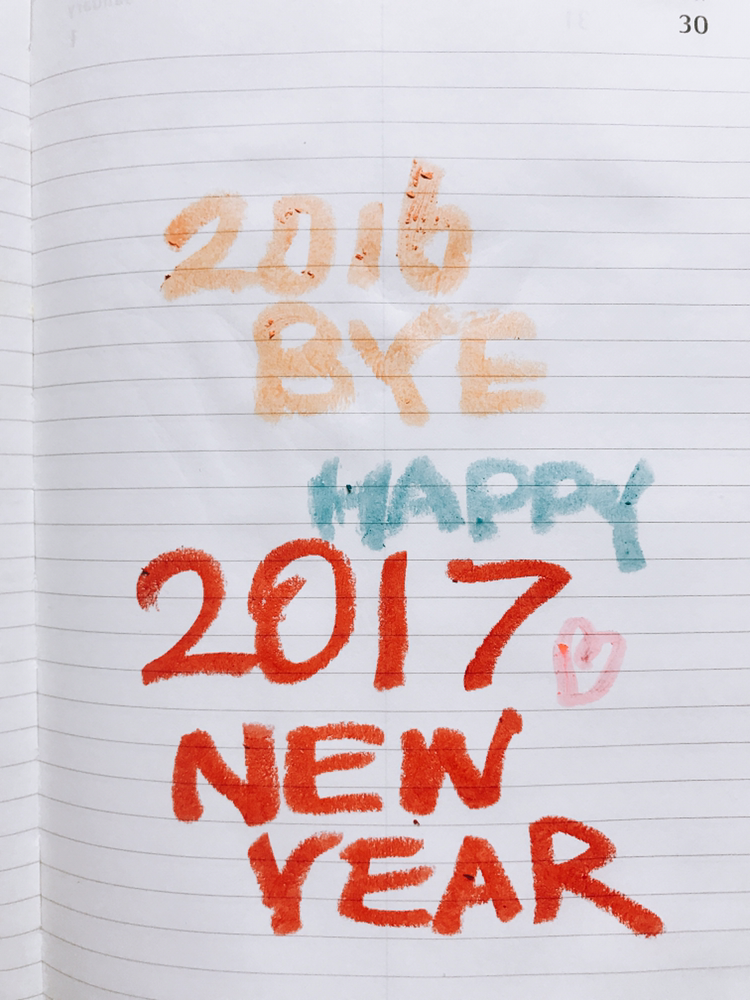 30
2016
BYE
HAPPY
2017
NEW
YEAR